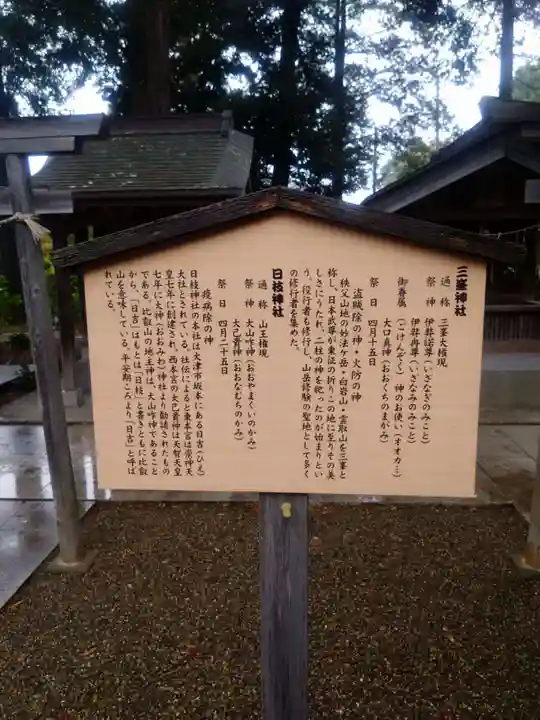 三峯神社
通称 三峯大権現
祭神 伊弉諾尊(いざなぎのみこと)
伊弉冉尊(いざなみのみこと)
御眷属(ごけんぞく) 神のお使い(オオカ…)
大口真神(おおくちのまがみ)
祭日 四月十五日
盗賊除の神・火防の神
秩父山地の妙法ヶ岳・白岩山・雲取山を三峯と
称し、日本武尊が東征の折りこの地に至りその美
しさにうたれ、二柱の神を祀ったのが始まりとい
う。役行者も修行し、山岳修験の聖地として多く
の修行者を集めた。
日枝神社
通称 山王権現
祭神 大山咋神(おおやまくいのかみ)
大己貴神(おおなむちのかみ)
祭日 四月二十五日
疫病除の神
日枝神社の本社は大津市坂本にある日吉(ひえ)
大社とされている。社伝によると東本宮は崇神天
皇七年に創建され、西本宮の大己貴神は天智天皇
七年に大神(おおみわ)神社より勧請されたもの
である。比叡山の地主神は、大山咋神であること
から、「日吉」はもとは「日枝」と書きともに比叡
山を意味している。平安期ころより「日吉」と呼ば
れている。